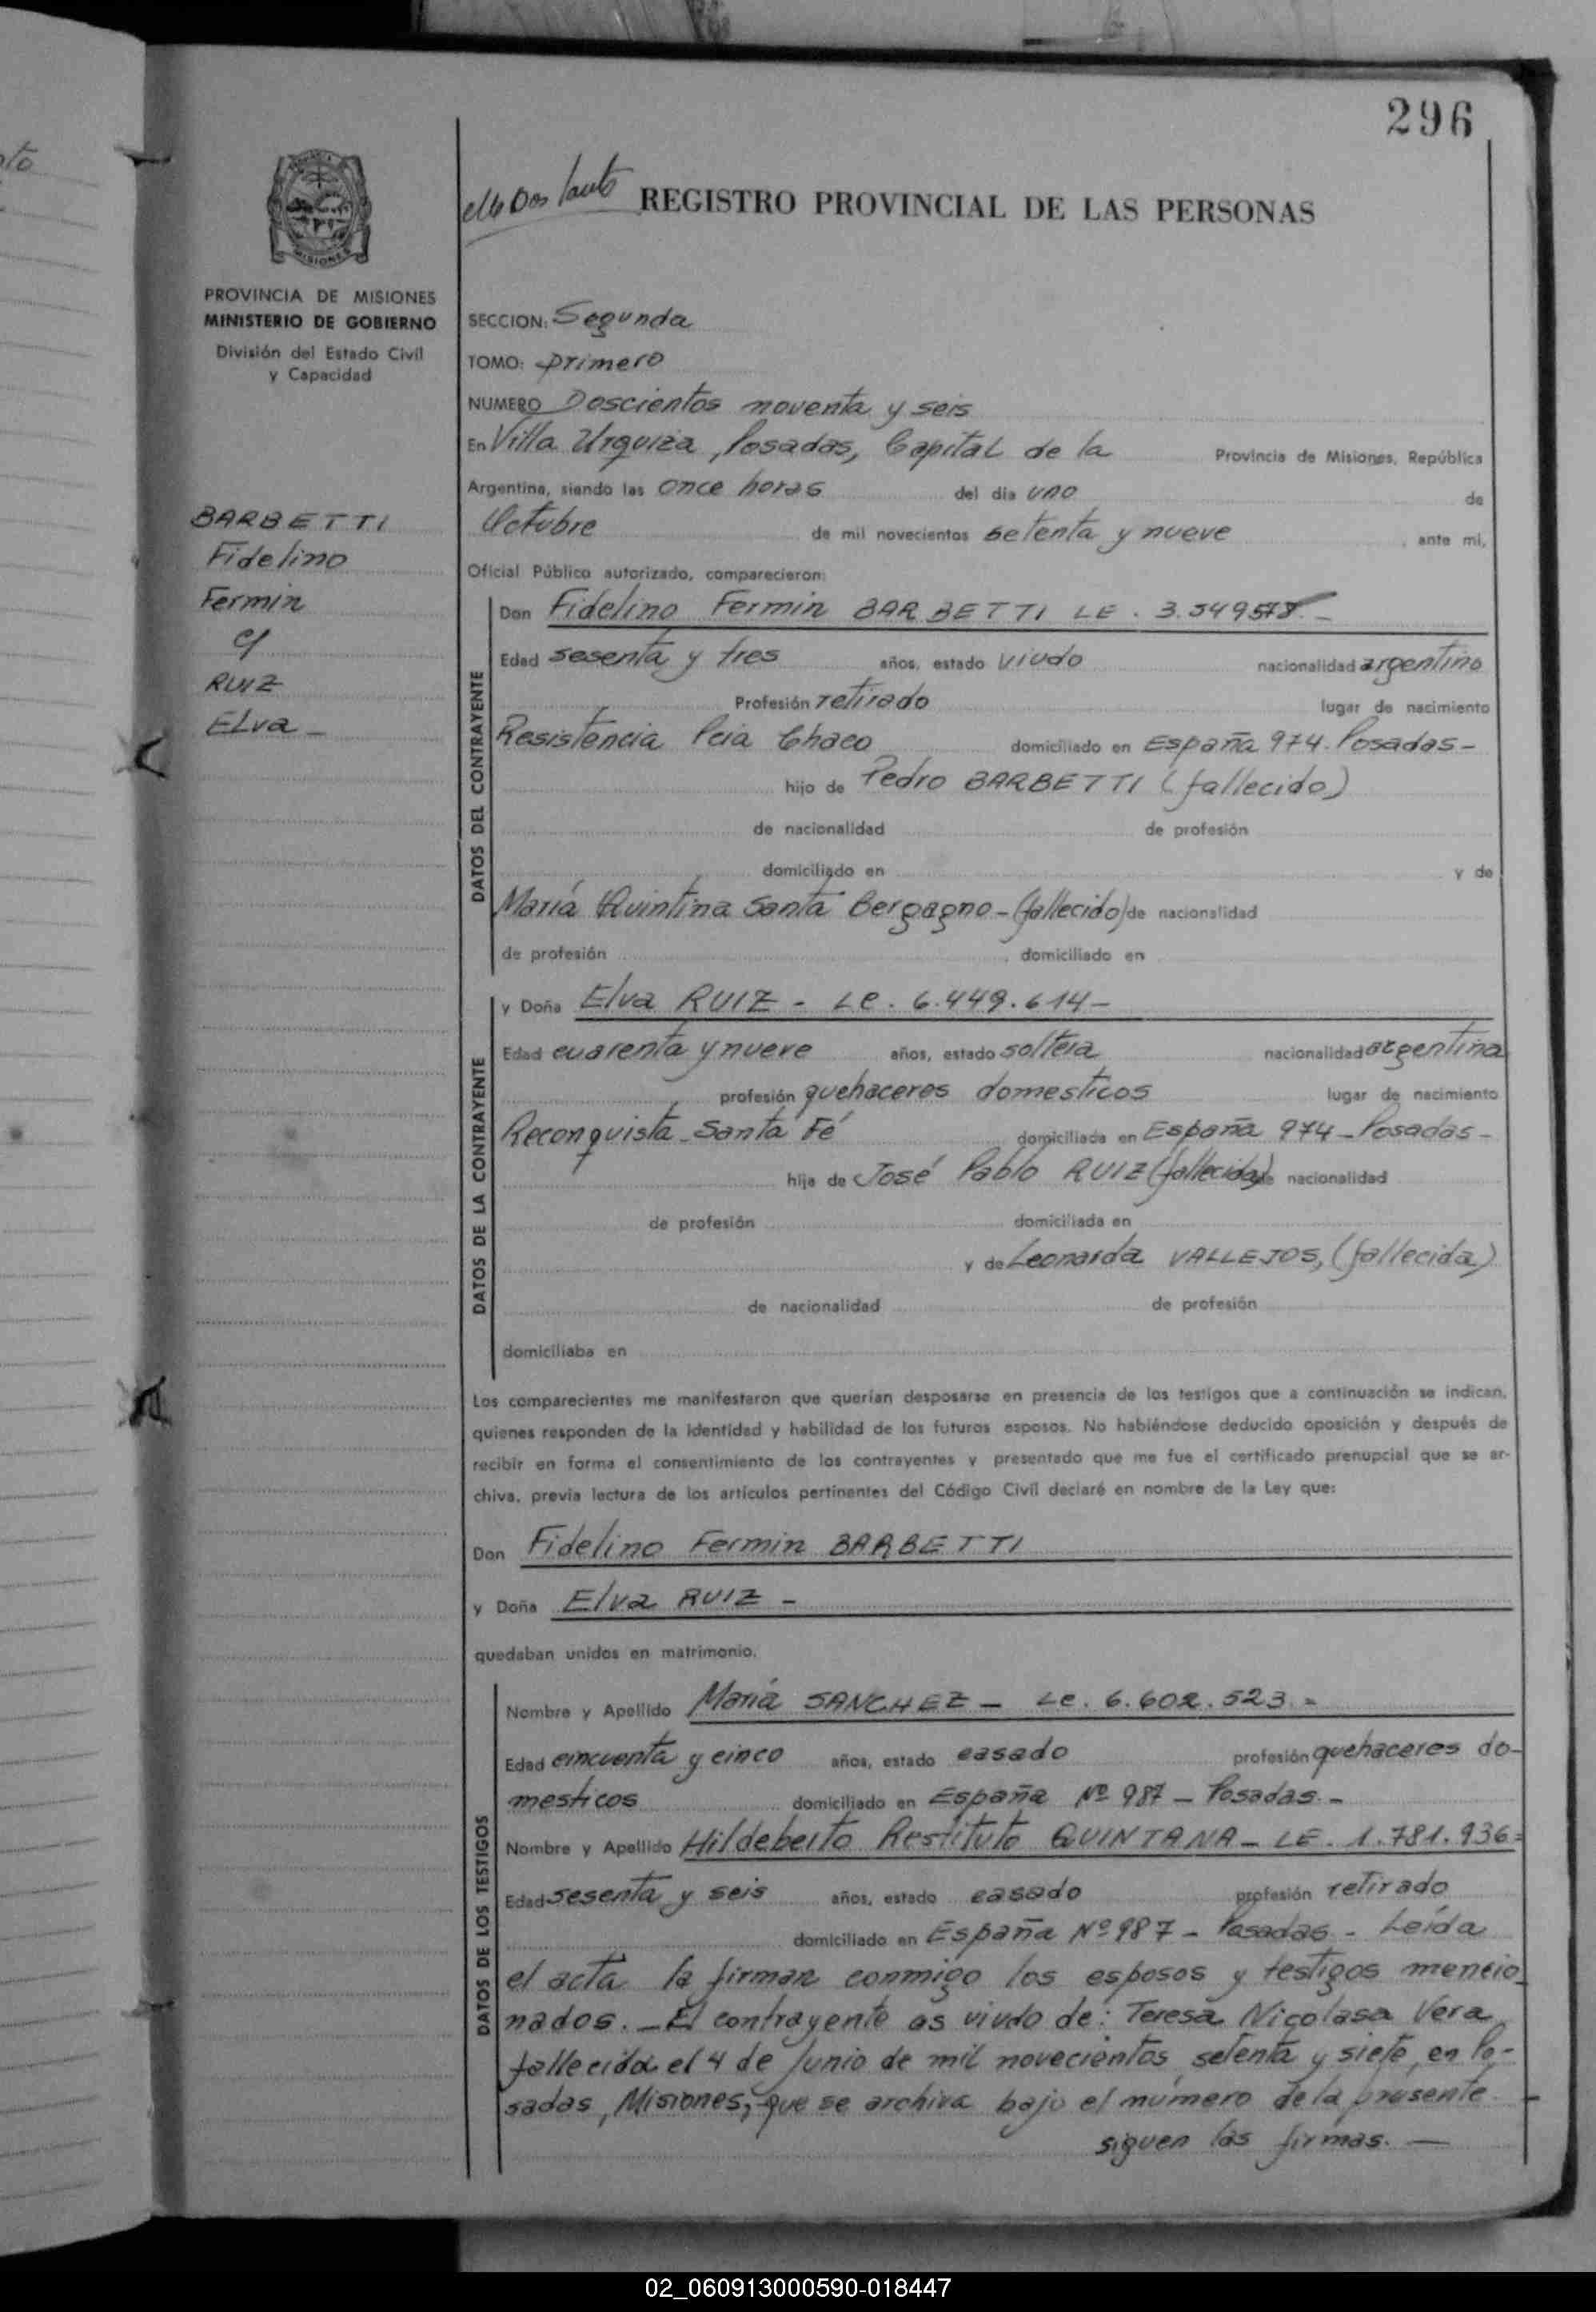 296
REGISTRO PROVINCIAL DE LAS PERSONAS
MISIONES
PROVINCIA DE MISIONES
MINISTERIO DE GOBIERNO
División del Estado Civil
y Capacidad
BARBETTI
Fidelino
Fermin
c/
RUIZ
ELva -
SECCION: Segunda
TOMO: primero
NUMERO Doscientos noventa y seis
En Villa Urquiza, Posadas, Capital de la Provincia de Misiones, República
Argentina, siendo las once horas del día uno de
Octubre de mil novecientos setenta y nueve, ante mi,
Oficial Público autorizado, comparecieron:
DATOS DEL CONTRAYENTE
Don Fidelino Fermin BARBETTI LE. 3.549578.-
Edad sesenta y tres años, estado viudo nacionalidad argentino
Profesión retirado lugar de nacimiento
Resistencia Pcia Chaco domiciliado en España 974. Posadas-
hijo de Pedro BARBETTI (fallecido)
de nacionalidad de profesión
domiciliado en y de
María Quintina Santa Bergagno-(fallecido) de nacionalidad
de profesión, domiciliado en
DATOS DE LA CONTRAYENTE
y Doña Elva RUIZ - Le. 6.449.614-
Edad cuarenta y nueve años, estado soltera nacionalidad argentina
profesión quehaceres domesticos lugar de nacimiento
Reconquista-Santa Fé domiciliada en España 974-Posadas-
hija de José Pablo RUIZ (fallecido) de nacionalidad
de profesión domiciliada en
y de Leonarda VALLEJOS, (fallecida)
de nacionalidad de profesión
domiciliaba en
Los comparecientes me manifestaron que querían desposarse en presencia de los testigos que a continuación se indican,
quienes responden de la identidad y habilidad de los futuros esposos. No habiéndose deducido oposición y después de
recibir en forma el consentimiento de los contrayentes y presentado que me fue el certificado prenupcial que se ar-
chiva, previa lectura de los artículos pertinentes del Código Civil declaré en nombre de la Ley que:
Don Fidelino Fermin BARBETTI
y Doña Elva RUIZ -
quedaban unidos en matrimonio.
DATOS DE LOS TESTIGOS
Nombre y Apellido María SANCHEZ - Le. 6.602.523.-
Edad cincuenta y cinco años, estado casado profesión quehaceres do-
mesticos domiciliado en España Nº 987 - Posadas.-
Nombre y Apellido Hildeberto Restituto QUINTANA- LE. 1.781.936=
Edad sesenta y seis años, estado casado profesión retirado
domiciliado en España Nº 987 - Posadas - Leída
el acta la firman conmigo los esposos y testigos mencio
nados. - El contrayente es viudo de: Teresa Nicolasa Vera
fallecida el 4 de Junio de mil novecientos setenta y siete, en Po-
sadas, Misiones, que se archiva bajo el número de la presente
siguen las firmas. -
02_060913000590-018447